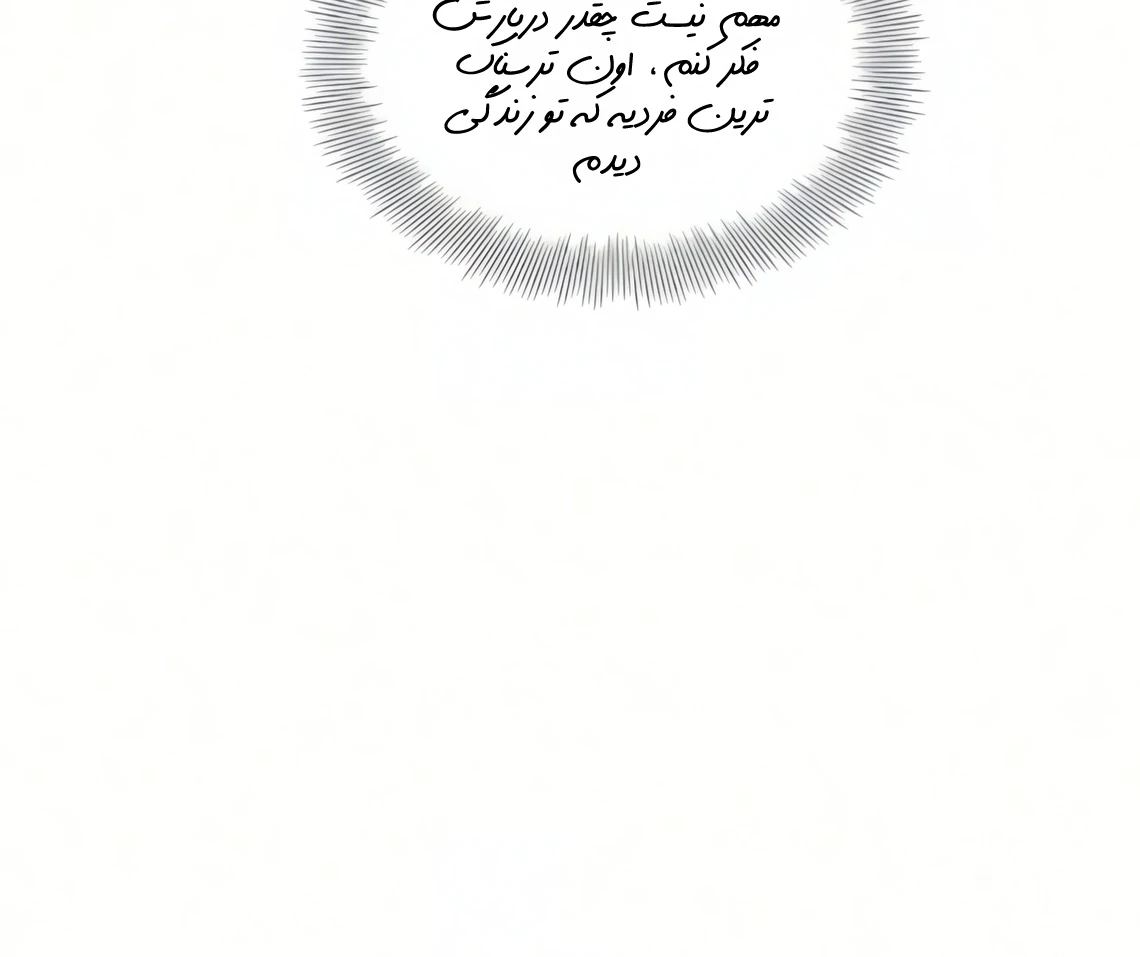 مهم نیست چقدر دربارش
فکر کنم، اون ترسناک
ترین فردیه که تو زندگی
دیدم